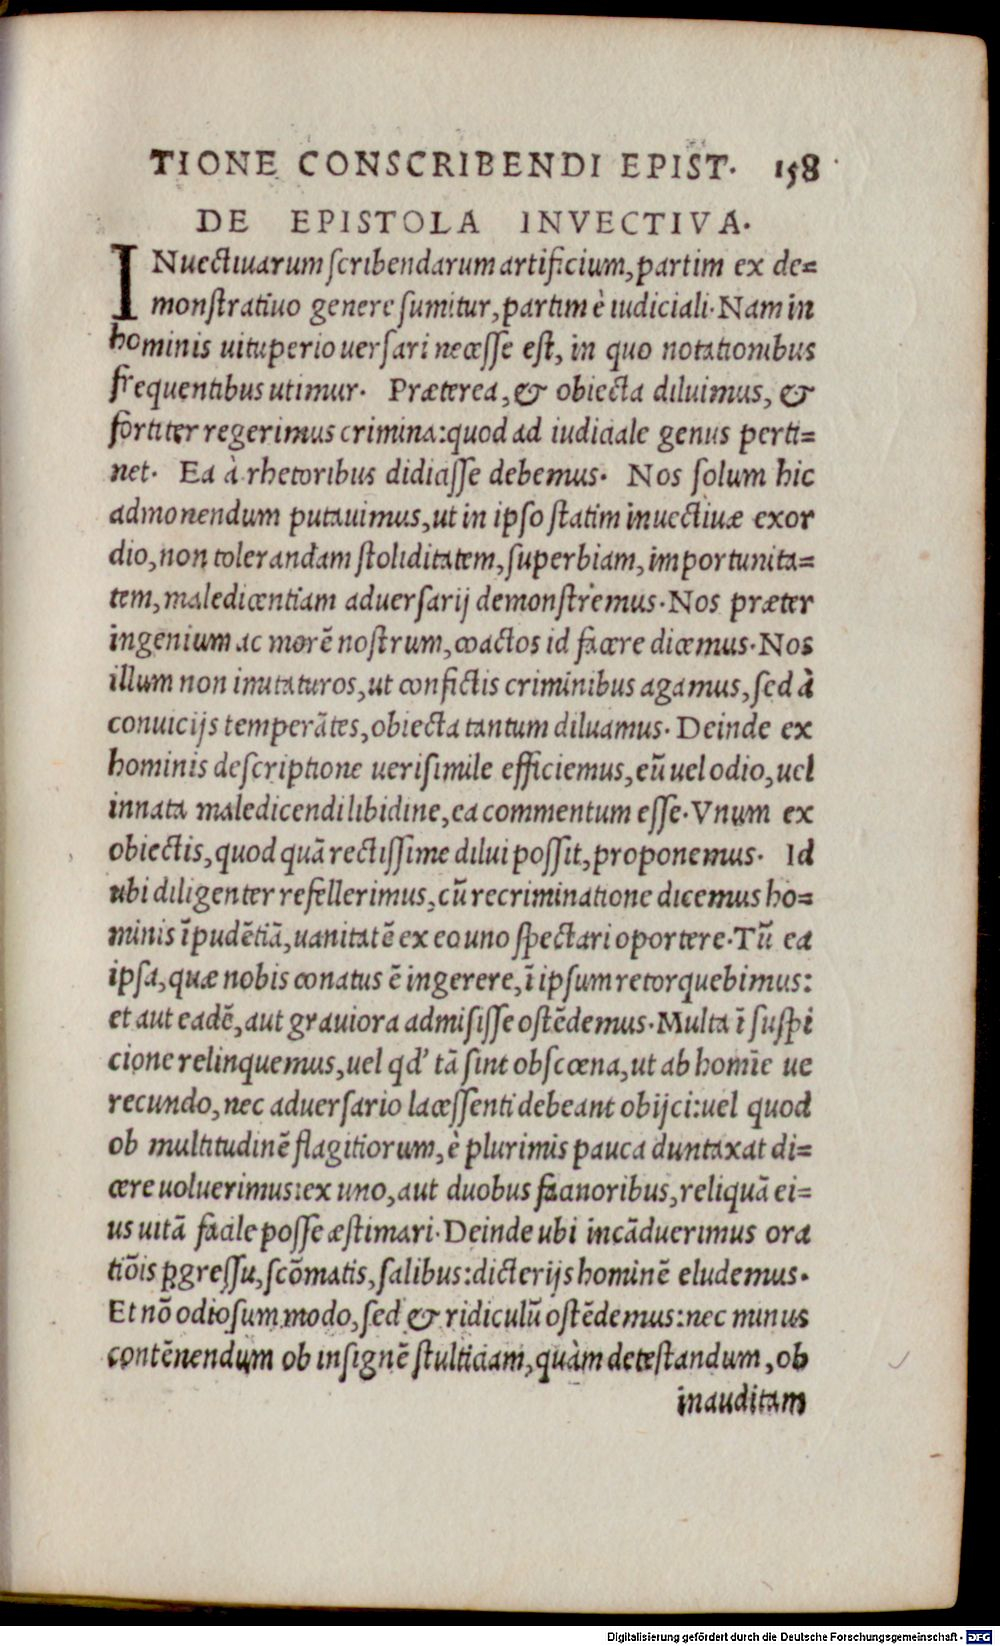 TIONE CONSCRIBENDI EPIST. 158
DE EPISTOLA INVECTIVA.
INuectiuarum ſcribendarum artificium, partim ex de=
monſtratiuo genere ſumitur, partim è iudiciali. Nam in
hominis uituperio uerſari neceſſe eſt, in quo notationibus
frequentibus utimur. Præterea, & obiecta diluimus, &
fortiter regerimus crimina: quod ad iudiciale genus perti=
net. Ea à rhetoribus didiciſſe debemus. Nos ſolum hic
admonendum putauimus, ut in ipſo ſtatim inuectiuæ exor
dio, non tolerandam ſtoliditatem, ſuperbiam, importunita=
tem, maledicentiam aduerſarij demonſtremus. Nos præter
ingenium ac morē noſtrum, coactos id facere dicemus. Nos
illum non imitaturos, ut confictis criminibus agamus, ſed à
conuicijs temperātes, obiecta tantum diluamus. Deinde ex
hominis deſcriptione ueriſimile efficiemus, eū uel odio, uel
innata maledicendi libidine, ea commentum eſſe. Vnum ex
obiectis, quod quā rectiſſime dilui poſſit, proponemus. Id
ubi diligenter refellerimus, cū recriminatione dicemus ho=
minis īpudētiā, uanitatē ex eo uno ſpectari oportere. Tū ea
ipſa, quæ nobis conatus ē ingerere, ī ipſum retorquebimus:
et aut eadē, aut grauiora admiſiſſe oſtēdemus. Multa ī ſuſpi
cione relinquemus, uel qd' tā ſint obſcœna, ut ab homīe ue
recundo, nec aduerſario laceſſenti debeant obijci: uel quod
ob multitudinē flagitiorum, è plurimis pauca duntaxat di=
cere uoluerimus: ex uno, aut duobus facinoribus, reliquā ei=
us uitā facile poſſe æſtimari. Deinde ubi incāduerimus ora
tiōis ꝓgreſſu, ſcōmatis, ſalibus: dicterijs hominē eludemus.
Et nō odioſum modo, ſed & ridiculū oſtēdemus: nec minus
contēnendum ob inſignē ſtulticiam, quàm deteſtandum, ob
inauditam
Digitalisierung gefördert durch die Deutsche Forschungsgemeinschaft - DFG